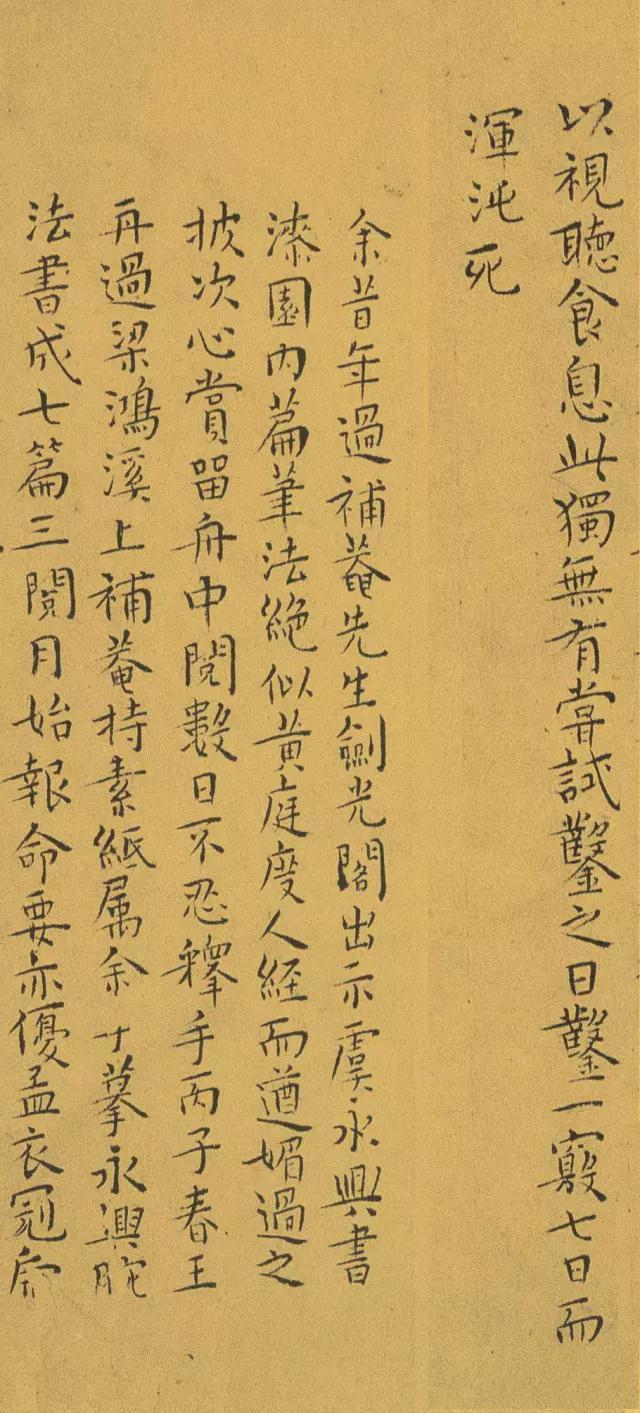 以視聽食息此獨無有嘗試鑿之日鑿一竅七日而
渾沌死
余昔年過補菴先生劍光閣出示虞永興書
漆園內篇筆法絕似黃庭度人經而遒媚過之
披次心賞留舟中閱數日不忍釋手丙子春王
再過梁鴻溪上補菴持素紙属余摹永興腕
法書成七篇三閱月始報命要亦優孟衣冠